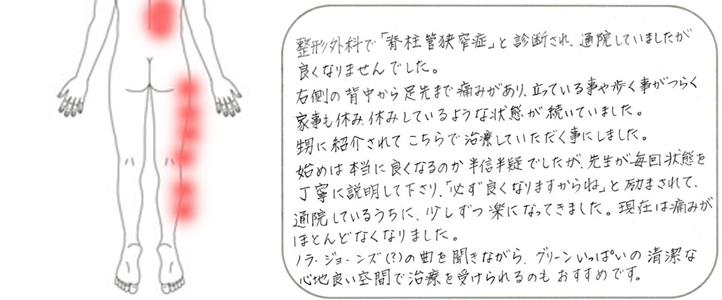 整形外科で「脊柱管狭窄症」と診断され、通院していましたが
良くなりませんでした。
右側の背中から足先まで痛みがあり、立っている事や歩く事がつらく
家事も休み、休みしているような状態が続いていました。
甥に紹介されてこちらで治療していただく事にしました。
始めは本当に良くなるのか半信半疑でしたが、先生が毎回状態を
丁寧に説明して下さり、「必ず良くなりますからね」と励まされて、
通院しているうちに、少しずつ楽になってきました。現在は痛みが
ほとんどなくなりました。
ノラ・ジョーンズ(?)の曲を聞きながら、グリーンいっぱいの清潔な
心地良い空間で治療を受けられるのもおすすめです。